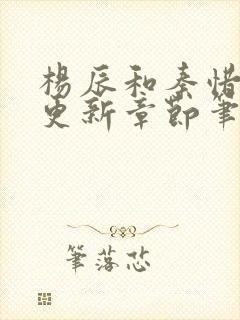 楊辰和秦惜
更新章節筆
筆落芯